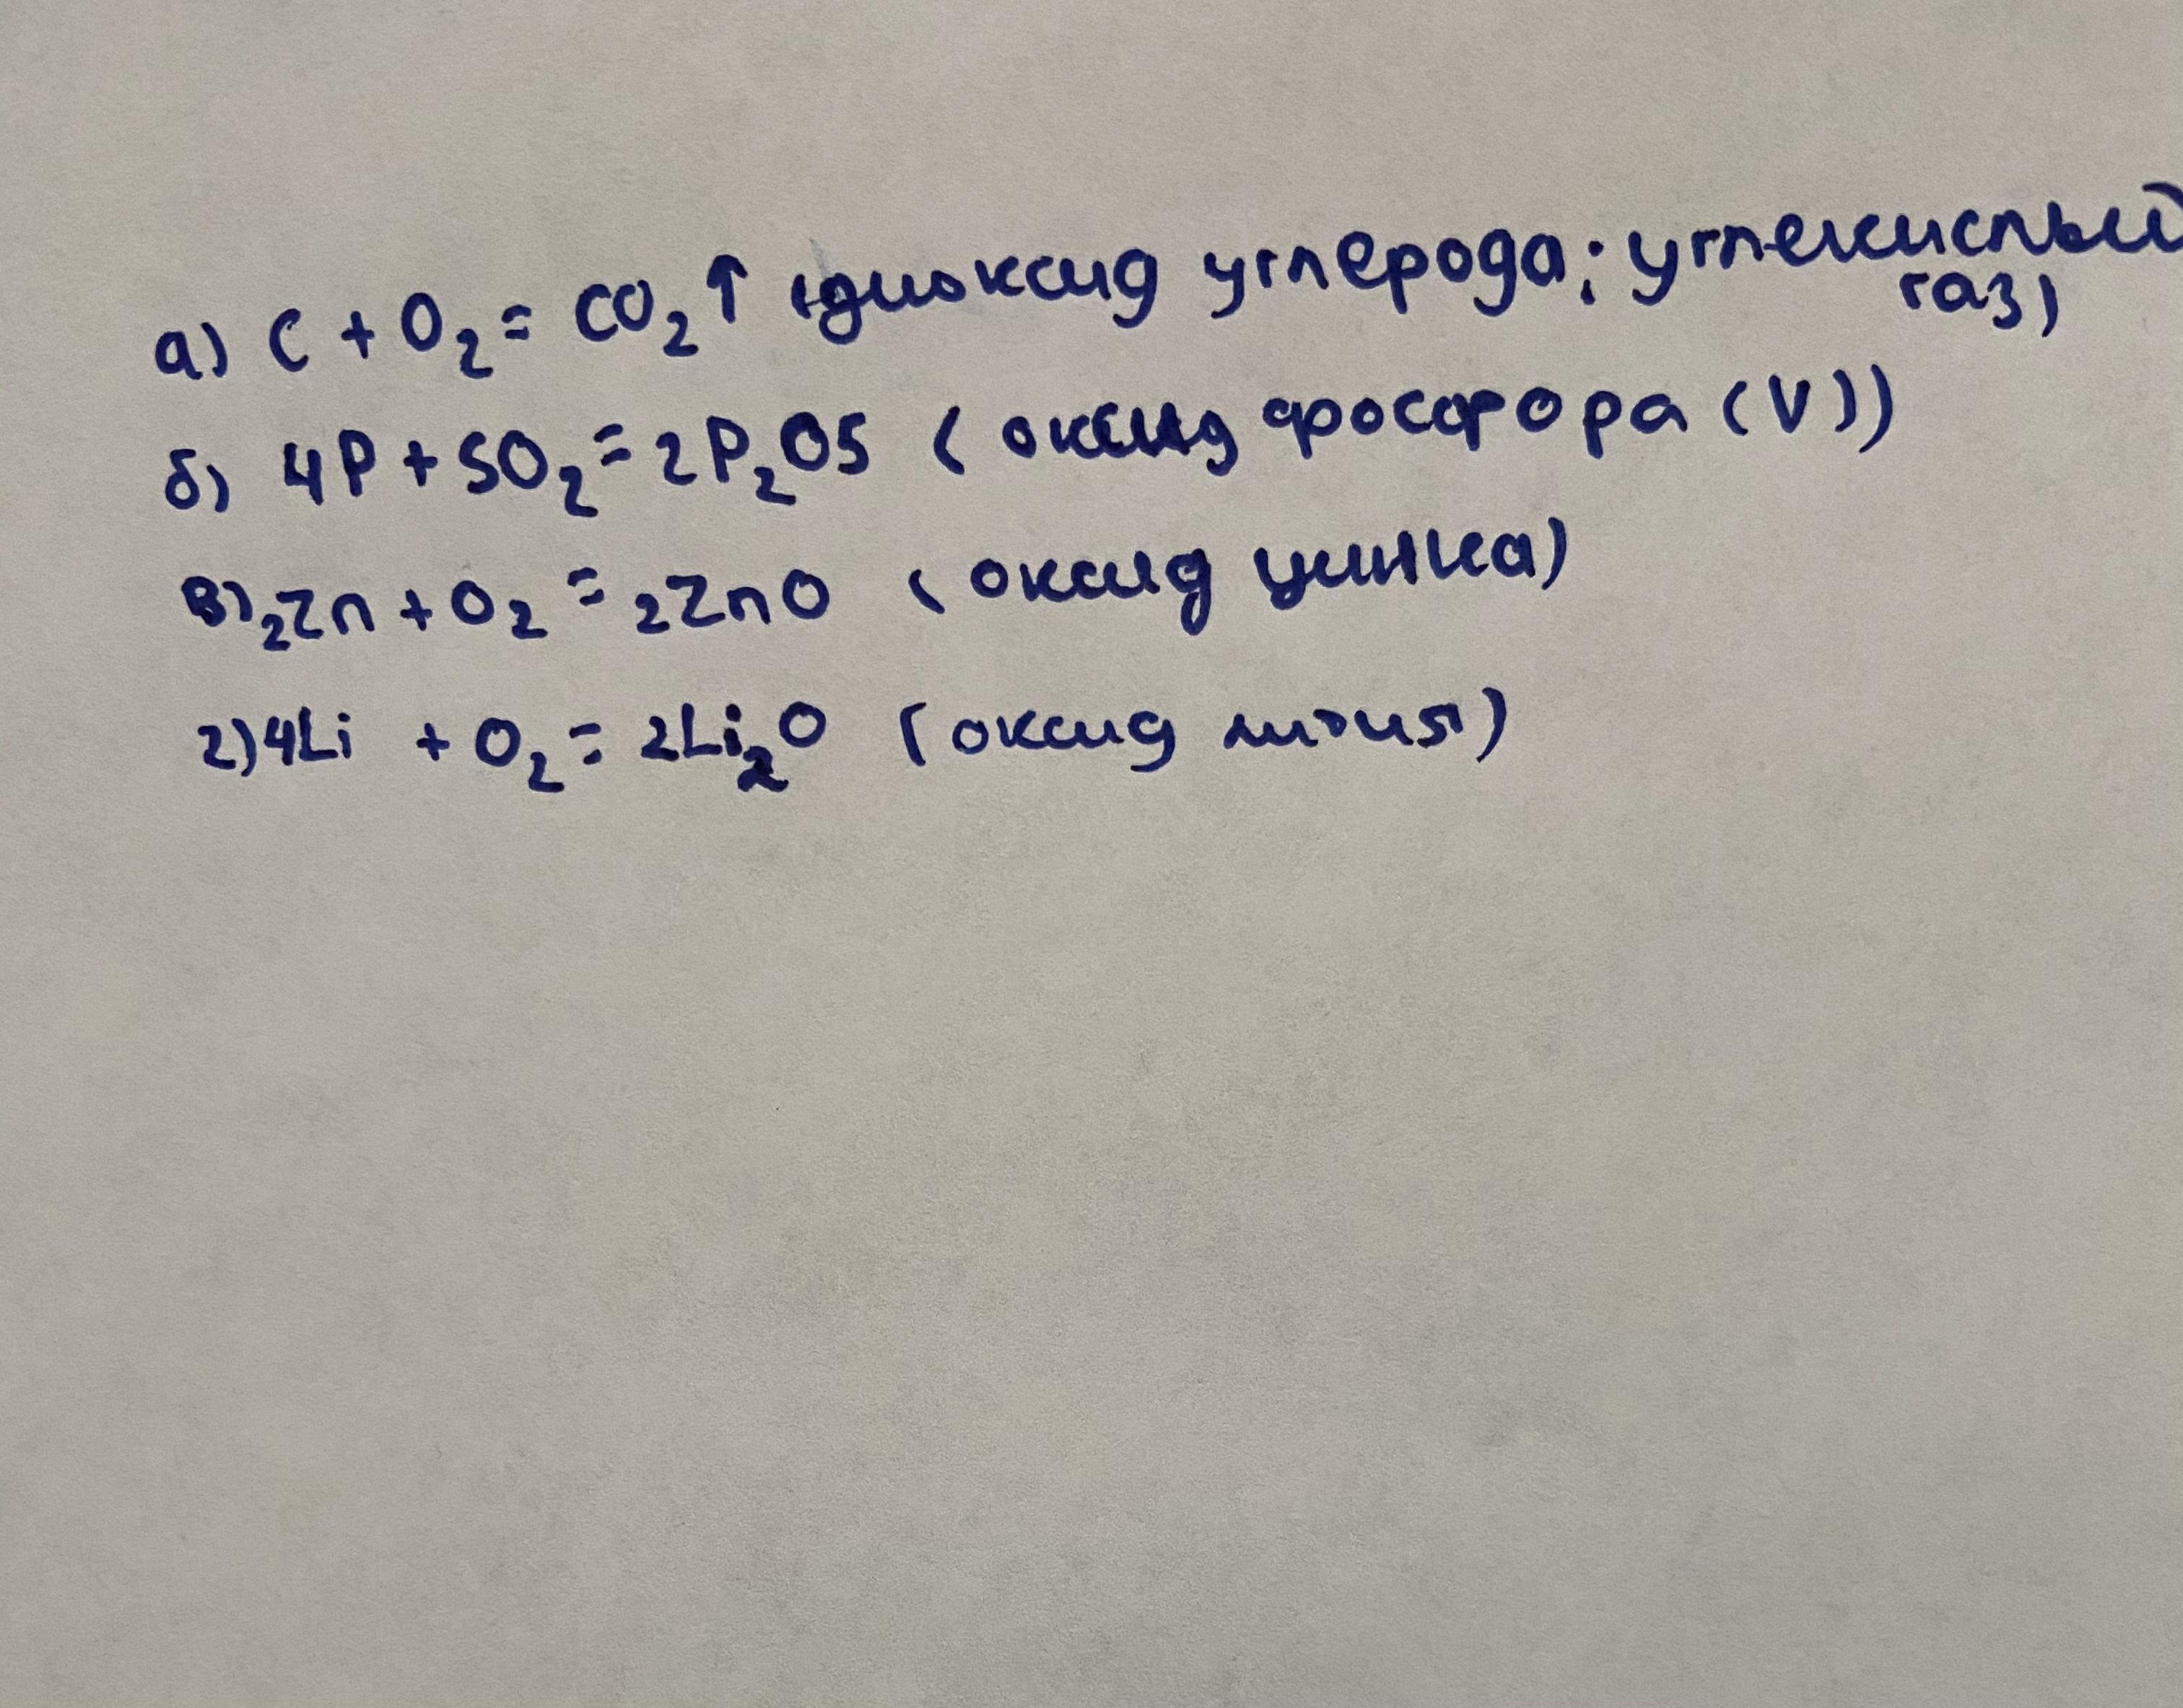 а) C + O₂ = CO₂↑ (диоксид углерода; углекислый
газ)
б) 4P + 5O₂ = 2P₂O5 (оксид фосфора (V))
в) 2Zn + O₂ = 2ZnO (оксид цинка)
г) 4Li + O₂ = 2Li₂O (оксид лития)